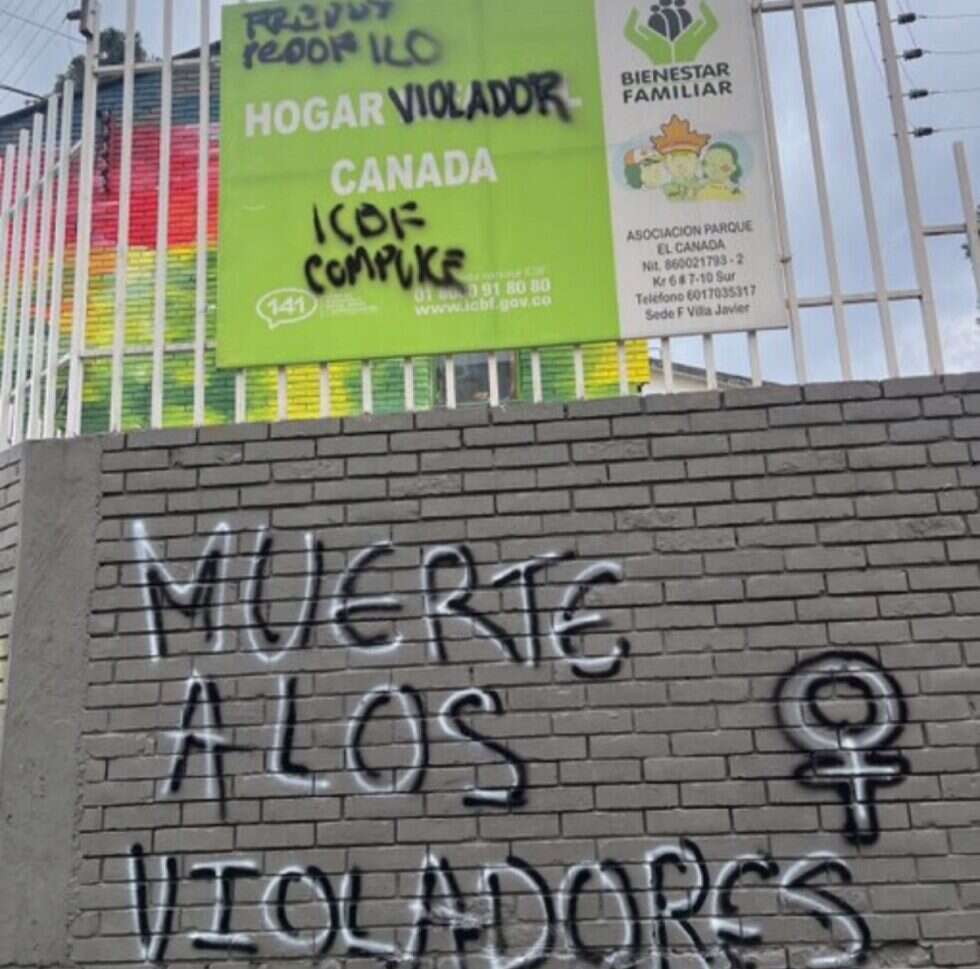 FREDDY
PEDOFILO
HOGAR VIOLADOR-
CANADA
ICBF
COMPLICE
141
01 8000 91 80 80
www.icbf.gov.co
BIENESTAR
FAMILIAR
ASOCIACION PARQUE
EL CANADA
Nit. 860021793 - 2
Kr 6 # 7-10 Sur
Teléfono 6017035317
Sede F Villa Javier
MUERTE
A LOS
VIOLADORES